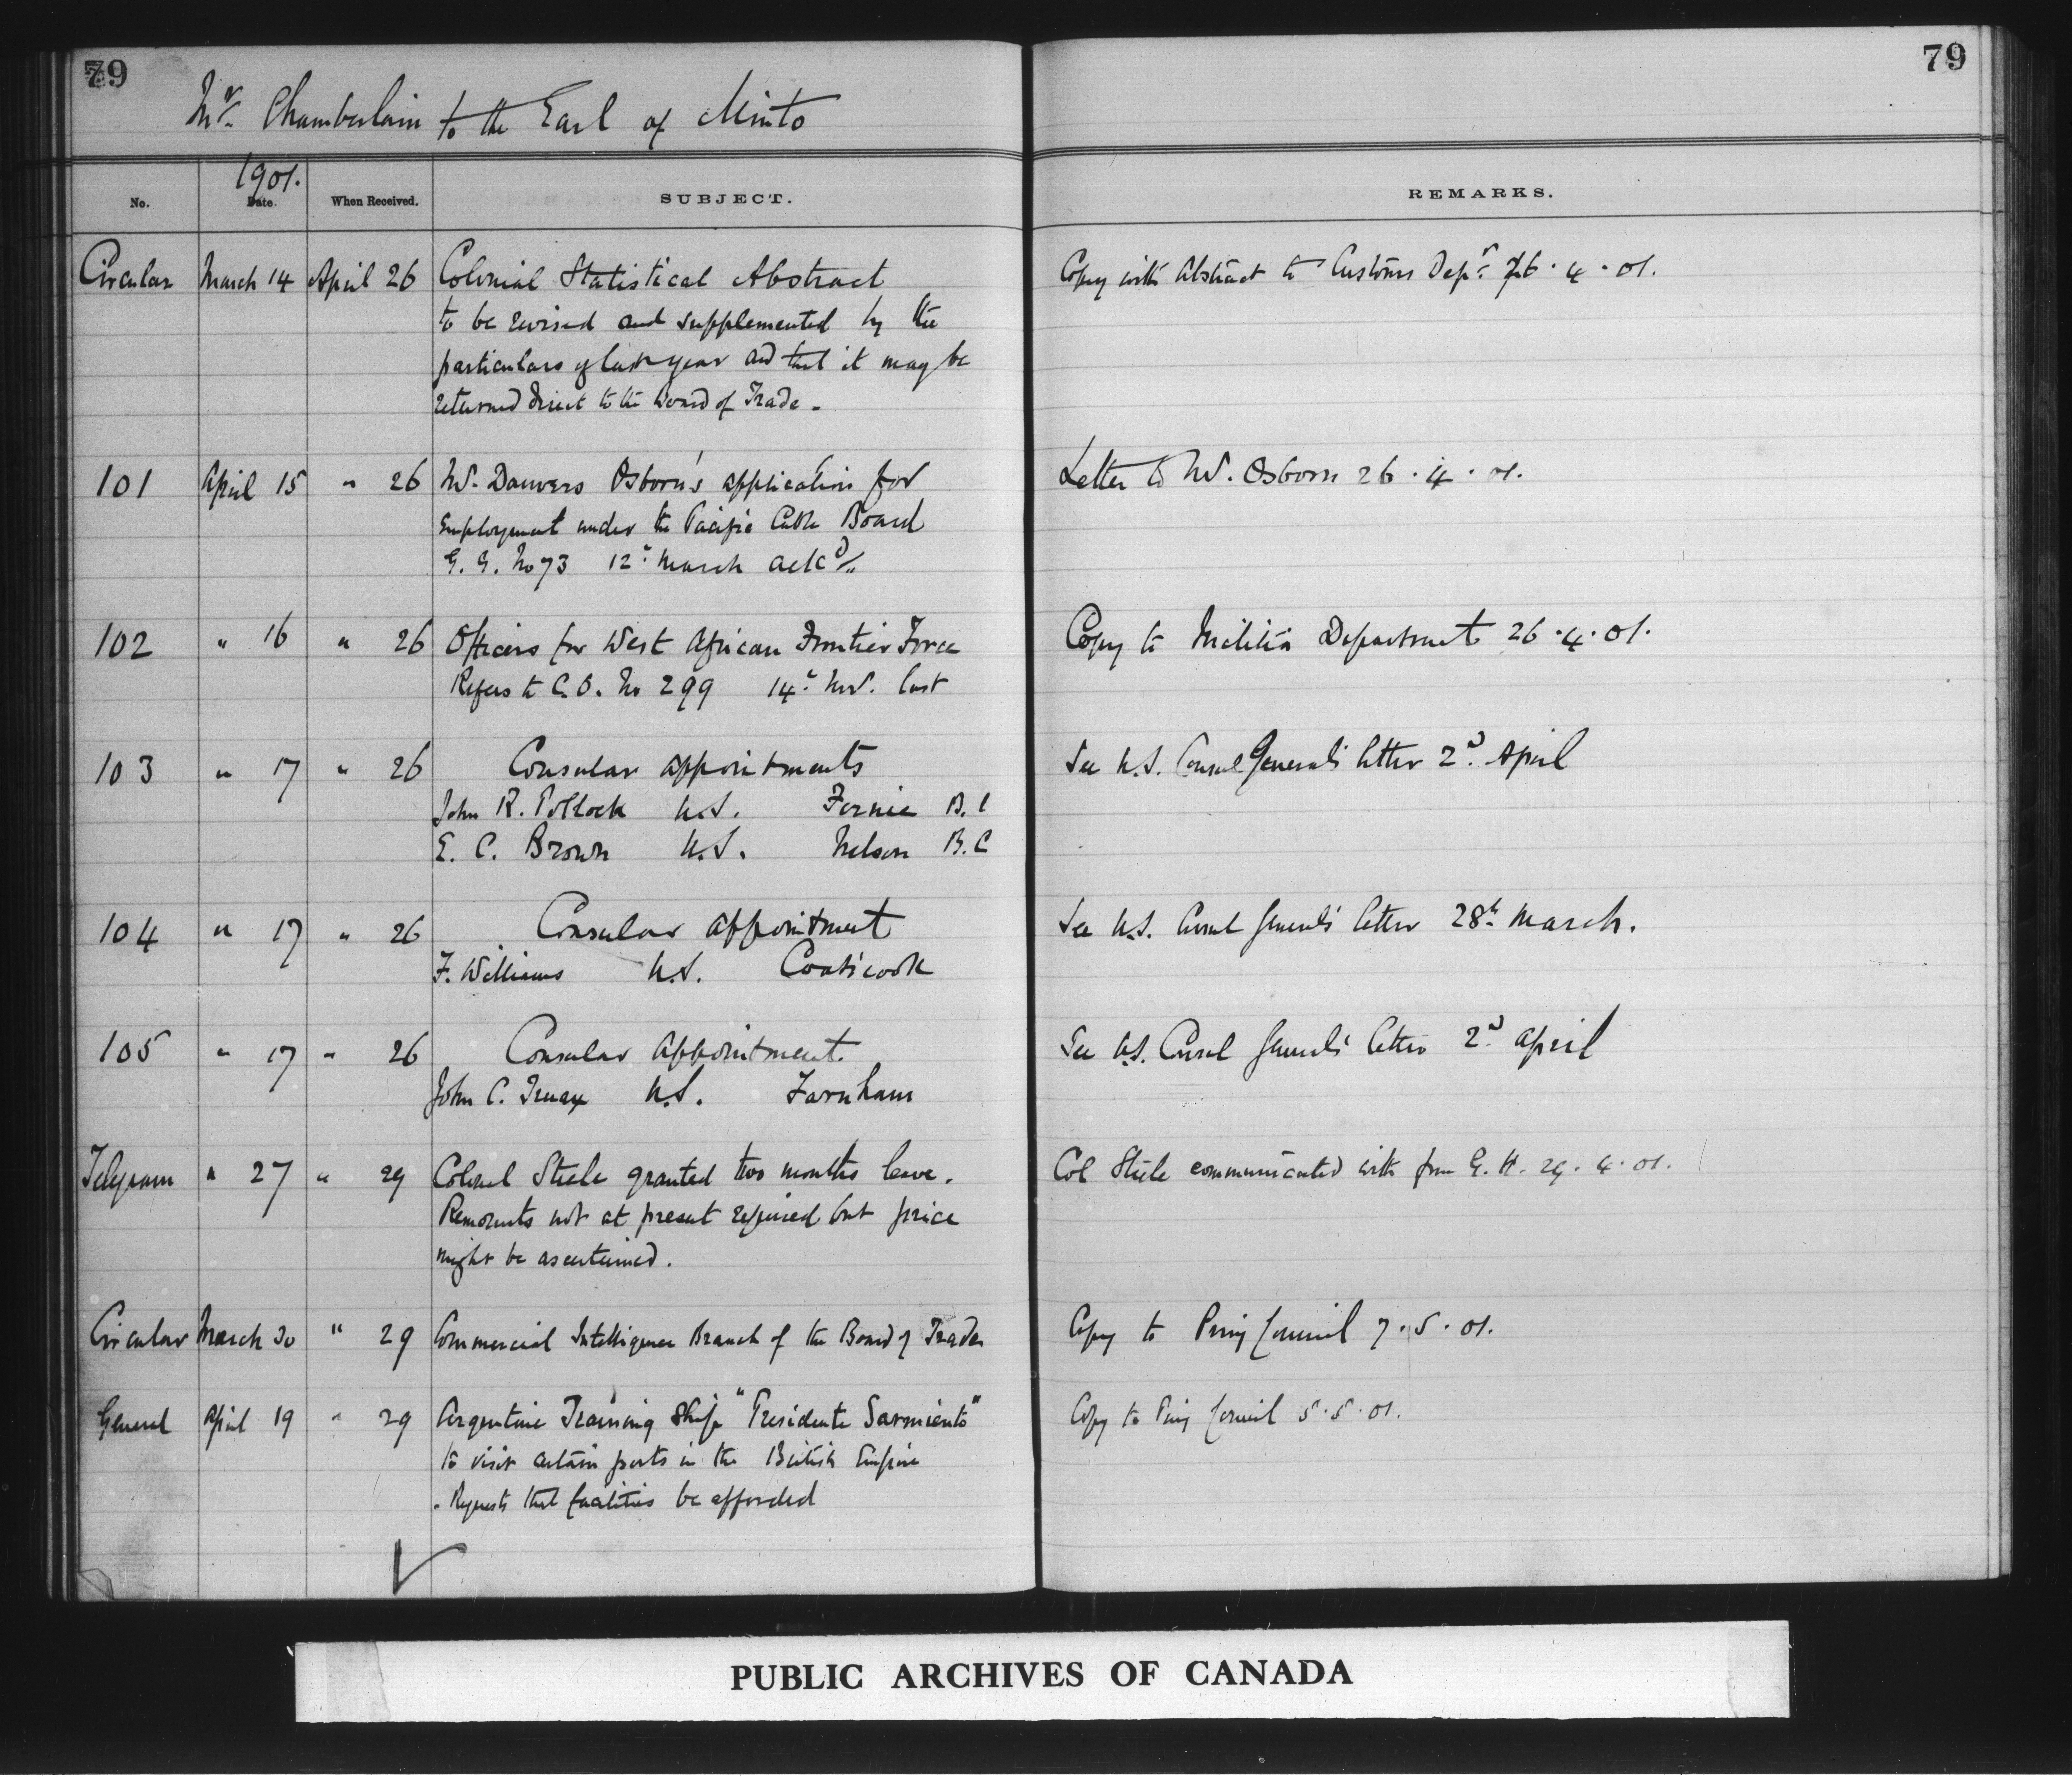 79
79
Mr. Chamberlain to the Earl of Minto
1901.
No.
Date.
When Received.
SUBJECT.
REMARKS.
Circular March 14 April 26 Colonial Statistical Abstract Copy with Abstract to Customs Dept. 26.4.01.
to be revised and supplemented by the
particulars of last year and that it may be
returned direct to the Board of Trade.
101 April 15 " 26 Mr. Danvers Osborn's application for Letter to Mr. Osborn 26.4.01.
Employment under the Pacific Cable Board
G.G. No 73 12th March ackd/,,
102 " 16 " 26 Officers for West African Frontier Force Copy to Militia Department 26.4.01.
Refers to C.O. No 299 14th Nov. last
103 " 17 " 26 Consular appointments See U.S. Consul General's letter 2d April
John R. Pollock U.S. Fernie B.C
E. C. Brown U.S. Nelson B.C
104 " 17 " 26 Consular appointment See U.S. Consul General's letter 28th March.
F. Williams U.S. Coaticook
105 " 17 " 26 Consular Appointment. See U.S. Consul General's letter 2d April
John C. Truax U.S. Farnham
Telegram " 27 " 29 Colonel Steele granted two months leave. Col Steele communicated with from G.H. 29.4.01.
Remounts not at present required but price
might be ascertained.
Circular March 30 " 29 Commercial Intelligence Branch of the Board of Trade Copy to Privy Council 7.5.01.
General April 19 " 29 Argentine Training Ship "Presidente Sarmiento" Copy to Privy Council 5.5.01.
to visit certain ports in the British Empire
. Requests that facilities be afforded
PUBLIC ARCHIVES OF CANADA